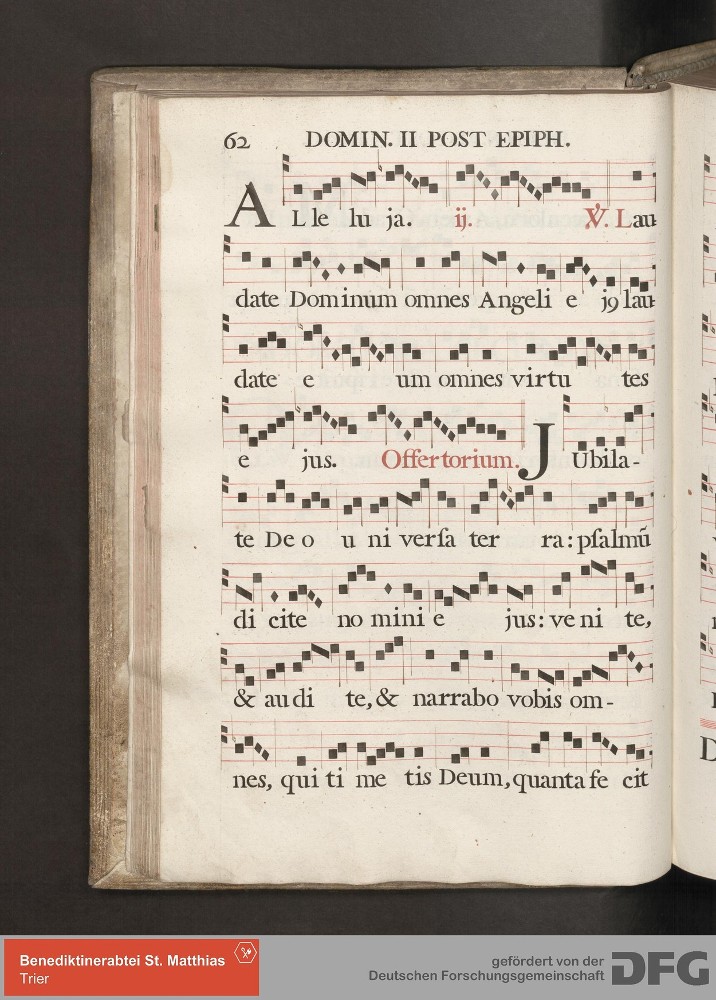 62 DOMIN. II POST EPIPH.
AL le lu ja. ij. ℣. Lau
date Dominum omnes Angeli e j9 lau-
date e um omnes virtu tes
e jus. Offertorium. JUbila-
te Deo u ni versa ter ra: psalmū
di cite no mini e jus: ve ni te,
& au di te, & narrabo vobis om-
nes, qui ti me tis Deum, quanta fe cit
Benediktinerabtei St. Matthias
Trier
gefördert von der
Deutschen Forschungsgemeinschaft DFG